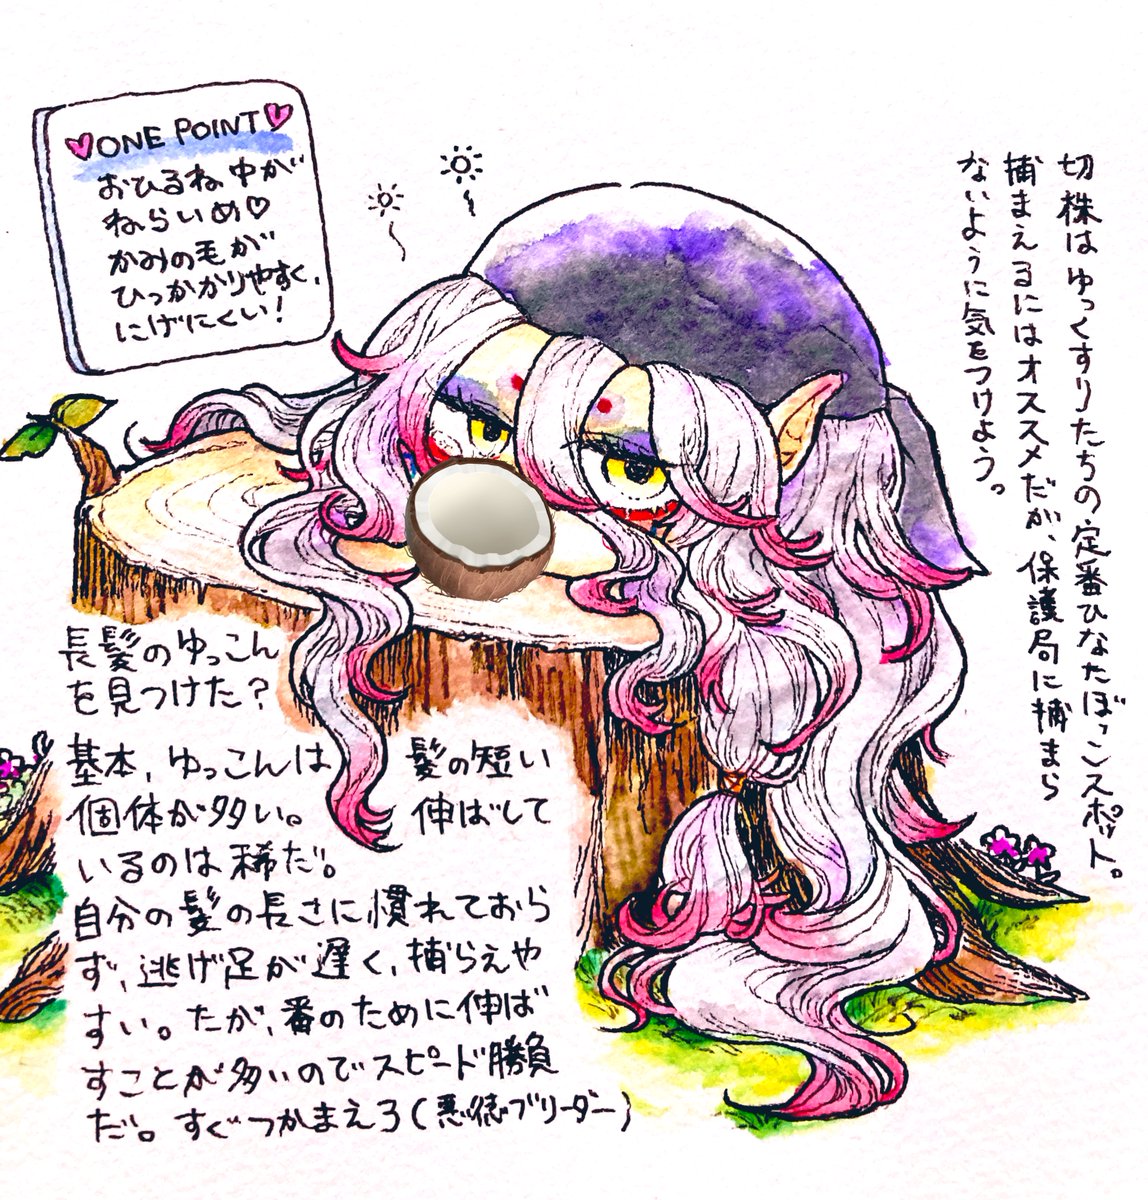 ONE POINT
おひるね中が
ねらいめ♡
かみの毛が
ひっかかりやすく、
にげにくい!
切株はゆっくすりたちの定番ひなたぼっこスポット。
捕まえるにはオススメだが、保護局に捕まら
ないように気をつけよう。
長髪のゆっこん
を見つけた?
基本、ゆっこんは髪の短い
個体が多い。伸ばして
いるのは稀だ。
自分の髪の長さに慣れておら
ず、逃げ足が遅く、捕らえや
すい。だが、番のために伸ば
すことが多いのでスピード勝負
だ。すぐつかまえろ(悪徳ブリーダー)